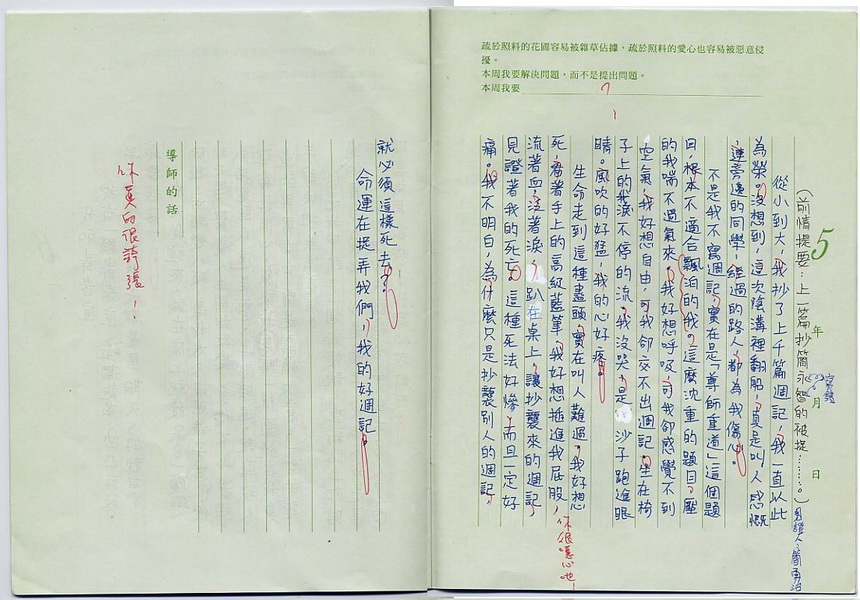 疏於照料的花園容易被雜草佔據，疏於照料的愛心也容易被惡意侵
擾。
本周我要解決問題，而不是提出問題。
本周我要
5 年 月 日
(前情提要：上一篇抄簡永智的被捉……。)
見證人：簡勇治
從小到大，我抄了上千篇週記，我一直以此
為榮。沒想到，這次陰溝裡翻船，真是叫人感慨
，連旁邊的同學，經過的路人，都為我傷心。
不是我不寫週記，實在是「尊師重道」這個題
目，根本不適合飄泊的我。這麼沈重的題目，壓
的我喘不過氣來。我好想呼吸，可我卻感覺不到
空氣，我好想自由，可我卻交不出週記。坐在椅
子上的我淚不停的流，我沒哭，是沙子跑進眼
睛。風吹的好猛，我的心好疼。
生命走到這種盡頭，實在叫人難過。我好想
死，看著手上的高級藍筆，我好想插進我屁股，
你很噁心吔！
流著血，沒著淚，趴在桌上，讓抄襲來的週記，
見證著我的死亡。這種死法好慘，而且一定好
痛。我不明白，為什麼只是抄襲別人的週記，
就必須這樣死去？
命運在捉弄我們，我的好週記。
導師的話
你真的很誇張！